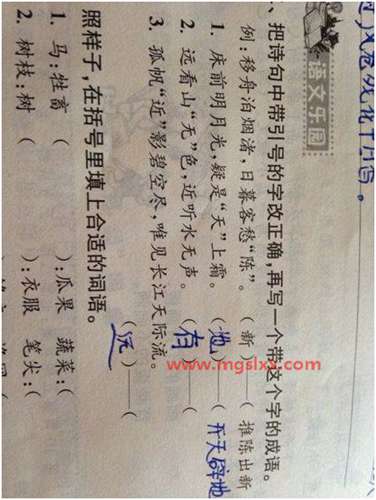 语文乐园
、把诗句中带引号的字改正确,再写一个带这个字的成语。
例:移舟泊烟渚,日暮客愁“陈”。(新)(推陈出新
1. 床前明月光,疑是“天”上霜。(地)—(开天辟地
2. 远看山“无”色,近听水无声。(有)—(
3. 孤帆“近”影碧空尽,唯见长江天际流。(远)—(
照样子,在括号里填上合适的词语。
1. 马:牲畜 ( ):瓜果 蔬菜:(
2. 树枝:树 ( ):衣服 笔尖:(
www.mgslxx.com